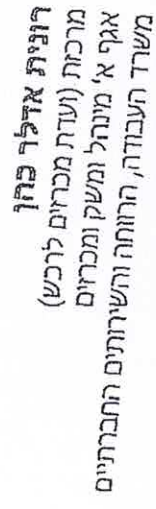 רונית אדלר כהן
מרכזת (ועדת מכרזים לרכש)
אגף א' מינהל ומשק ומכרזים
משרד העבודה, הרווחה והשירותים החברתיים